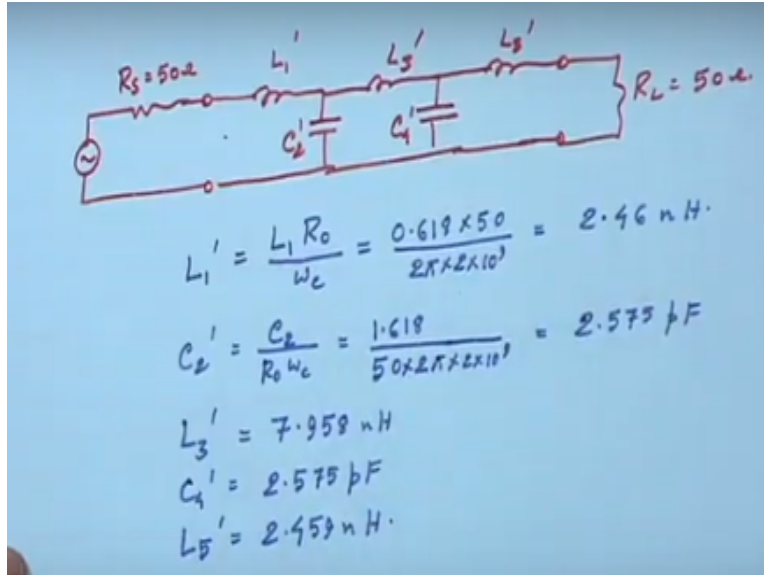 Rs = 50Ω
L1'
L3'
L5'
RL = 50Ω
C2'
C4'
L1' = L1 R0 / ωc = 0.618 × 50 / 2π × 2 × 10⁹ = 2.46 nH.
C2' = C2 / R0 ωc = 1.618 / 50 × 2π × 2 × 10⁹ = 2.575 pF
L3' = 7.958 nH
C4' = 2.575 pF
L5' = 2.459 nH.